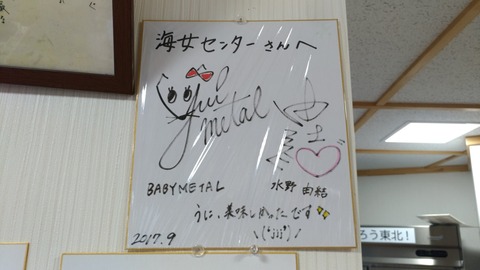 海女センターさんへ
Yui
metal
BABYMETAL
水野 由結
うに、美味しかったです
\(*jjj*)/
2017.9
ろう東北!